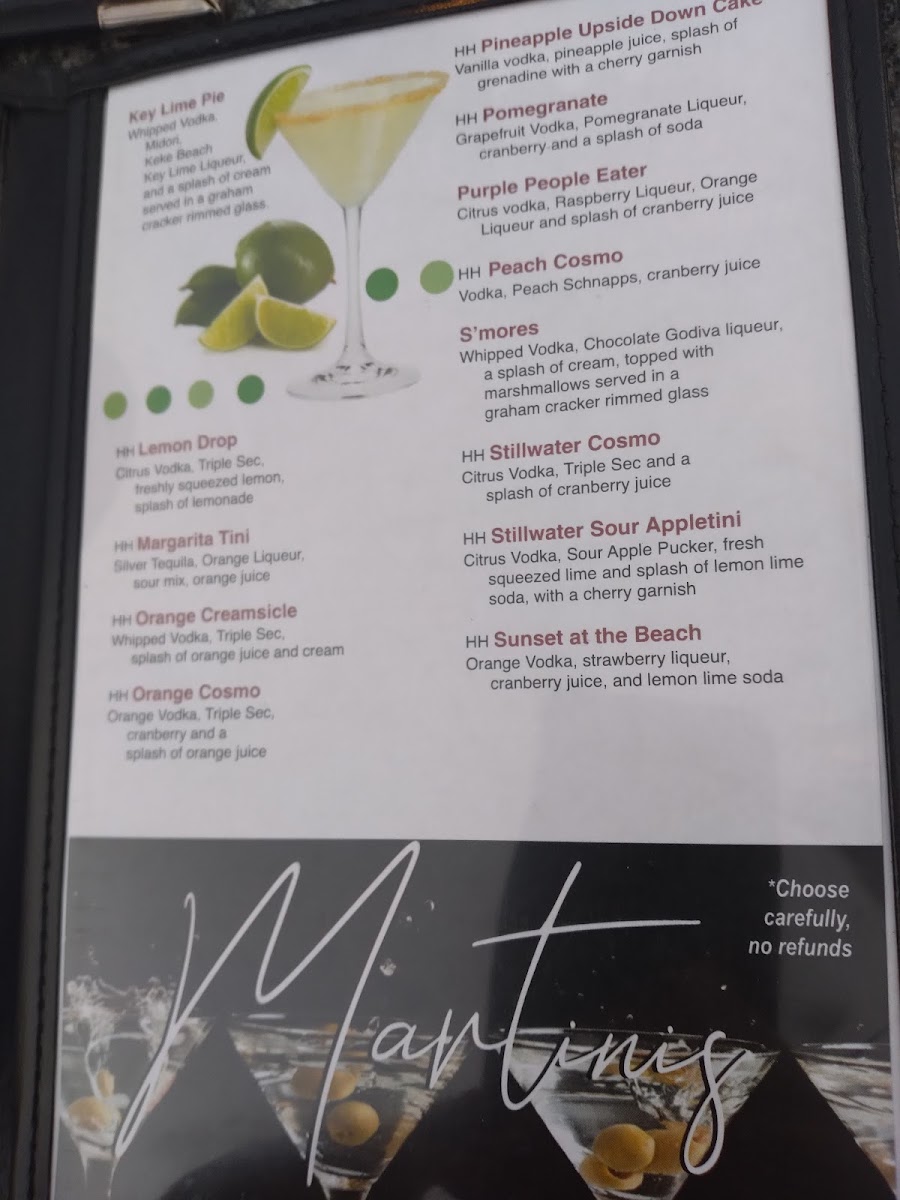 Key Lime Pie
Whipped Vodka,
Midori,
Keke Beach
Key Lime Liqueur,
and a splash of cream
served in a graham
cracker rimmed glass.
HH Lemon Drop
Citrus Vodka, Triple Sec,
freshly squeezed lemon,
splash of lemonade
HH Margarita Tini
Silver Tequila, Orange Liqueur,
sour mix, orange juice
HH Orange Creamsicle
Whipped Vodka, Triple Sec,
splash of orange juice and cream
HH Orange Cosmo
Orange Vodka, Triple Sec,
cranberry and a
splash of orange juice
HH Pineapple Upside Down Cake
Vanilla vodka, pineapple juice, splash of
grenadine with a cherry garnish
HH Pomegranate
Grapefruit Vodka, Pomegranate Liqueur,
cranberry and a splash of soda
Purple People Eater
Citrus vodka, Raspberry Liqueur, Orange
Liqueur and splash of cranberry juice
HH Peach Cosmo
Vodka, Peach Schnapps, cranberry juice
S'mores
Whipped Vodka, Chocolate Godiva liqueur,
a splash of cream, topped with
marshmallows served in a
graham cracker rimmed glass
HH Stillwater Cosmo
Citrus Vodka, Triple Sec and a
splash of cranberry juice
HH Stillwater Sour Appletini
Citrus Vodka, Sour Apple Pucker, fresh
squeezed lime and splash of lemon lime
soda, with a cherry garnish
HH Sunset at the Beach
Orange Vodka, strawberry liqueur,
cranberry juice, and lemon lime soda
*Choose
carefully,
no refunds
Martinis